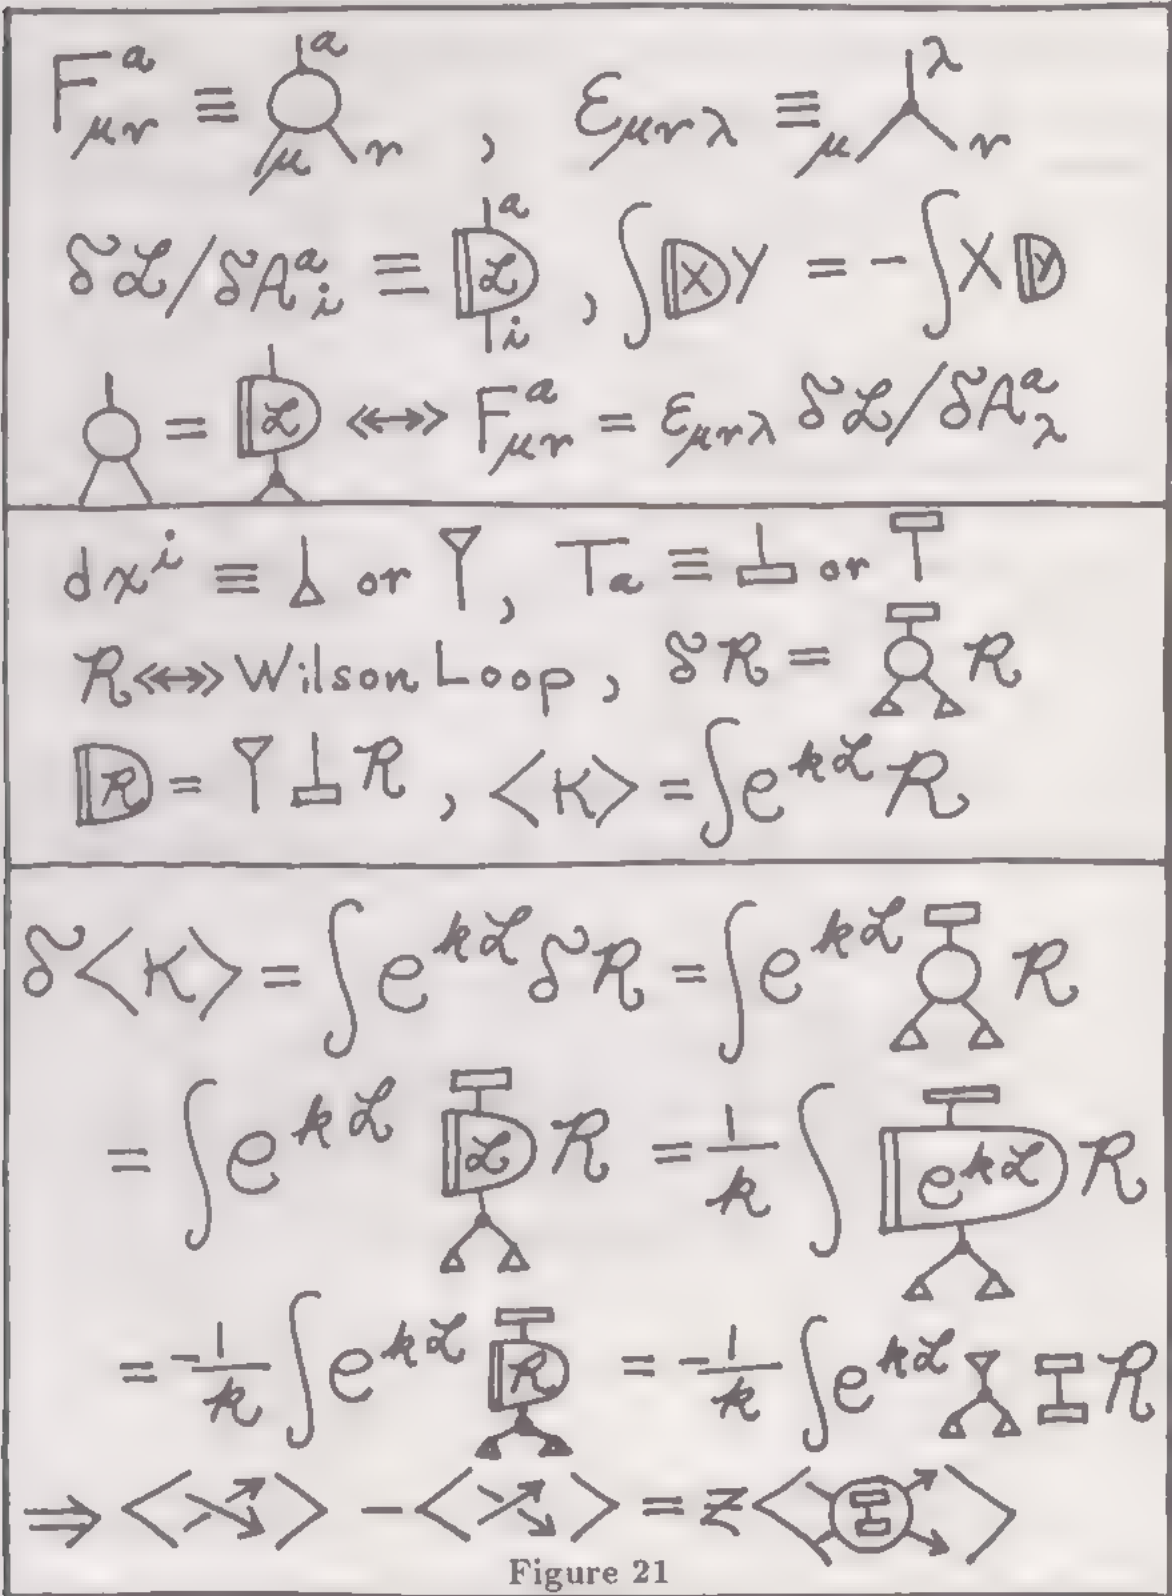 F^a_{μν} ≡ a μ ν , ε_{μνλ} ≡ λ μ ν
δℒ/δA^a_i ≡ a ℒ i , ∫ X Y = - ∫ X Y
= ℒ ↔ F^a_{μν} = ε_{μνλ} δℒ/δA^a_λ
dx^i ≡ or , T_a ≡ or
R ↔ Wilson Loop , δR = R
R = R , <K> = ∫ e^{kℒ} R
δ<K> = ∫ e^{kℒ} δR = ∫ e^{kℒ} R
= ∫ e^{kℒ} ℒ R = 1/k ∫ e^{kℒ} R
= -1/k ∫ e^{kℒ} R = -1/k ∫ e^{kℒ} R
⇒ < > - < > = z < >
Figure 21